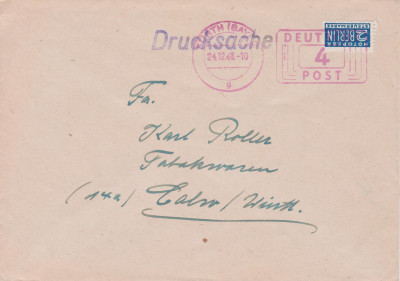 Drucksache
FÜRTH (BAY)
24.12.48.-10
g
DEUTSCHE
4
POST
NOTOPFER
2 BERLIN
STEUERMARKE
Fa.
Karl Roller
Tabakwaren
(14a) Calw/Württ.